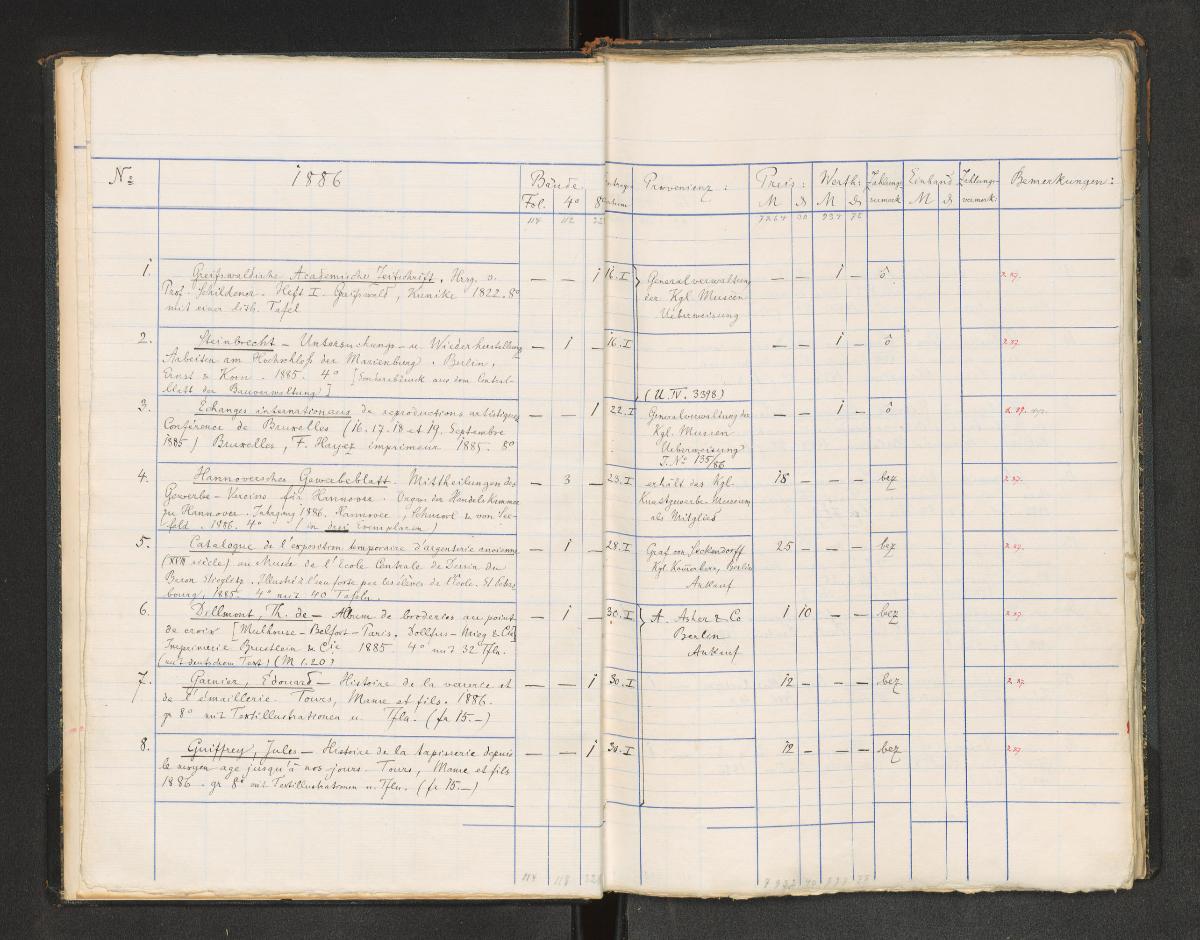 No 1886 Bände Provenienz: Preis: Werth: Zahlungs- Einband Zahlungs- Bemerkungen:
Fol. 4o 8o M d M d vermerk M d vermerk:
114 112
1. Greifswaldische Academische Zeitschrift. Hrsg. v. — — 1 16.I Generalverwaltung — — 1 — ô
Prof. Schildener. Heft I. Greifswald, Kunike 1822. 8o der Kgl. Museen
mit einer lith. Tafel Ueberweisung
2. Steinbrecht — Untersuchungs- u. Wiederherstellungs — 1 — 16.I — — 1 — ô
Arbeiten am Hochschloß der Marienburg. Berlin,
Ernst & Korn. 1885. 4o [Sonderabdruck aus dem Central-
blatt der Bauverwaltung] (U. IV. 3398)
3. Echanges internationaux de reproductions artistiques — — 1 22.I Generalverwaltung der — — 1 — ô
Conférence de Bruxelles (16. 17. 18 et 19. Septembre Kgl. Museen
1885) Bruxelles, F. Hayez imprimeur 1885. 8o Ueberweisung
J. No 135/86
4. Hannoversches Gewerbeblatt. Mittheilungen des — 3 — 23.I erhält das Kgl. 15 — — — bez
Gewerbe-Vereins für Hannover. Organ der Handels Kammer Kunstgewerbe-Museum
zu Hannover. Jahrgang 1886. Hannover, Schmorl & von See- als Mitglied
feld. 1886. 4o (in drei Exemplaren)
5. Catalogue de l'exposition temporaire d'argenterie ancienne — 1 — 28.I Graf von Seckendorff 25 — — — bez
(XVIII siècle) au Musée de l'Ecole Centrale de Dessin du Kgl. Kammerherr, Berlin
Baron Stieglitz. Illustré à l'eau forte par les élèves de l'Ecole. St Péters- Ankauf
bourg, 1885. 4o mit 40 Tafeln.
6. Dillmont, Th. de — Album de broderies au point — 1 — 30.I A. Asher & Co 1 10 — — bez
de croix [Mulhouse-Belfort-Paris. Dollfus-Mieg & Cie] Berlin
Imprimerie Brustlein & Cie 1885 4o mit 32 Tfln. Ankauf
(mit deutschem Text) (M 1.20)
7. Garnier, Edouard — Histoire de la verrerie et — — 1 30.I 12 — — — bez
de l'émaillerie. Tours, Mame et fils. 1886.
gr 8o mit Textillustrationen u. Tfln. (fr 15.—)
8. Guiffrey, Jules — Histoire de la tapisserie depuis — — 1 30.I 12 — — — bez
le moyen age jusqu'à nos jours. Tours, Mame et fils
1886. gr 8o mit Textillustrationen u. Tfln. (fr 15.—)
114 118